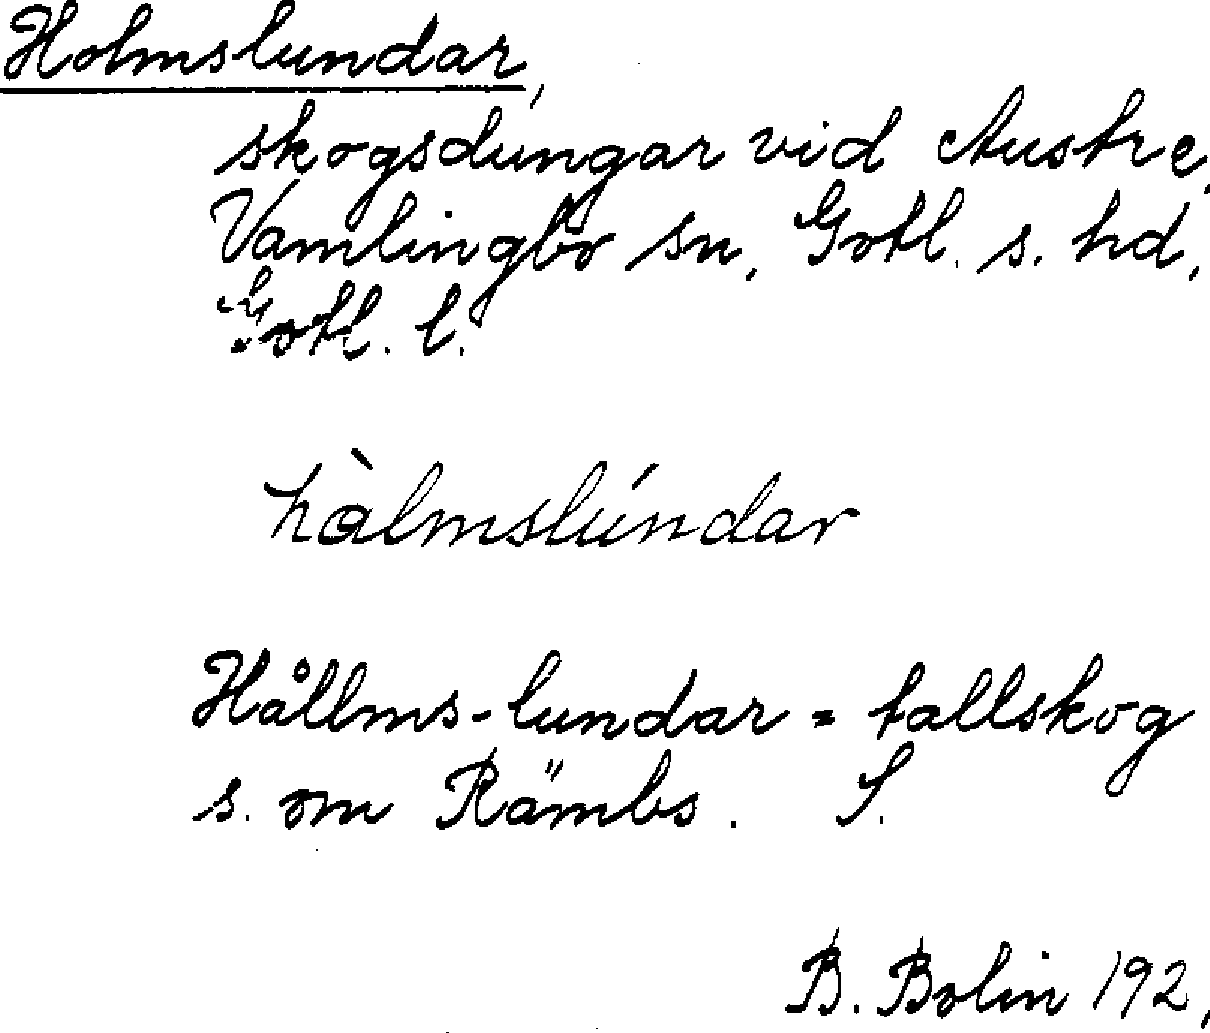 Holmslundar,
skogsdungar vid Austre,
Vamlingbo sn, Gotl. s. hd,
Gotl. l.
hàlmslúndar
Hållms-lundar = tallskog
s. om Rämbs. S.
B. Bolin 192,